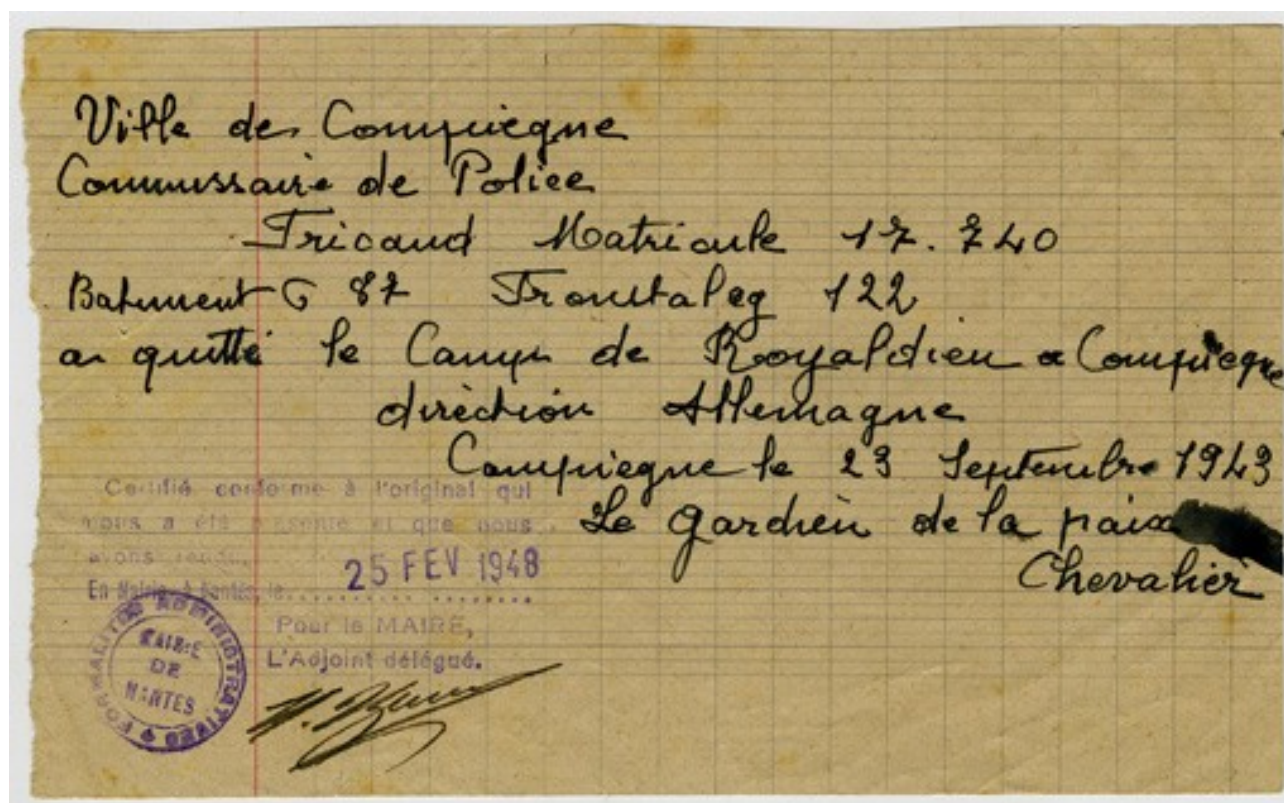 Ville de Compiegne
Commissaire de Police
Tricaud Matricule 17.740
Batument G 87 Fronstaleg 122
a quitté le Camp de Royaldieu a Compiegne
diréction Allemagne
Compiegne le 23 Septembre 1943
Le gardien de la paix
Chevalier
Certifié conforme à l'original qui
nous a été présenté et que nous
avons rendu.
En Mairie à Nantes, le 25 FEV 1948
Pour le MAIRE,
L'Adjoint délégué.
FORMALITES ADMINISTRATIVES
MAIRIE
DE
NANTES